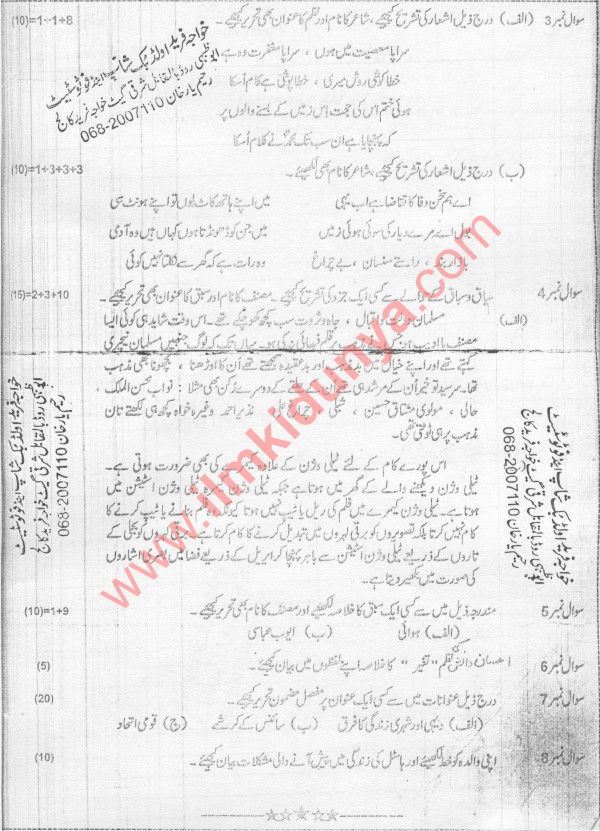 سوال نمبر 3 (الف) درج ذیل اشعار کی تشریح کیجیے، شاعر کا نام اور نظم کا عنوان بھی تحریر کیجیے۔ (10)=1+1+8
سراپا معصیت میں ہوں ، سراپا مغفرت وہ ہے
خطا کوشی روش میری ، خطا پوشی ہے کام اُسکا
ہوئی ختم اس کی حجت اس زمیں کے بسنے والوں پر
کہ پہنچایا ہے ان سب تک محمدؐ نے کلام اُسکا
خواجہ فرید اولڈ بک شاپ اینڈ فوٹوسٹیٹ
ابوظہبی روڈ بالمقابل شرقی گیٹ خواجہ فرید کالج
رحیم یارخان 068-2007110
(ب) درج ذیل اشعار کی تشریح کیجیے، شاعر کا نام بھی لکھیے۔ (10)=1+3+3+3
اے ہم سخن وفا کا تقاضا ہے اب یہی میں اپنے ہاتھ کاٹ لوں تو اپنے ہونٹ سی
بول اے مرے دیار کی سوئی ہوئی زمیں میں جن کو ڈھونڈتا ہوں کہاں ہیں وہ آدمی
بازار بند ، راستے سنسان ، بے چراغ وہ رات ہے کہ گھر سے نکلتا نہیں کوئی
سوال نمبر 4 سیاق و سباق کے حوالے سے کسی ایک جزو کی تشریح کیجیے۔ مصنف کا نام اور سبق کا عنوان بھی تحریر کیجیے۔ (15)=2+3+10
(الف) مسلمان دولت و اقبال ، جاہ و ثروت سب کچھ کھو چکے تھے۔ اس وقت شاید ہی کوئی ایسا
مصنف یا ادیب ہو یہاں تک کہ لوگ جنہیں مسلمان نیچری
کہتے تھے اور اپنے خیال میں بد مذہب اور بد عقیدہ سمجھتے تھے اُن کا اوڑھنا ، بچھونا بھی مذہب
تھا۔ سرسید تو خیر اُن کے مرشد ہی تھے اُن کے حلقے کے دوسرے رکن بھی مثلاً : نواب محسن الملک
حالی ، مولوی مشتاق حسین ، شبلی ، چراغ علی ، نذیر احمد وغیرہ خواہ کچھ ہی لکھتے تان
مذہب پر ہی ٹوٹتی تھی۔
اس پورے کام کے لئے ٹیلی وژن کے علاوہ کیمرے کی بھی ضرورت ہوتی ہے۔
ٹیلی وژن دیکھنے والے کے گھر میں ہوتا ہے جبکہ ٹیلی وژن کیمرہ ٹیلی وژن اسٹیشن میں
ہوتا ہے۔ ٹیلی وژن کیمرے میں فلم کی ریل یا ٹیپ نہیں ہوتا کیونکہ وہ فلم بنانے یا ٹیپ کرنے کا
کام نہیں کرتا بلکہ تصویروں کو برقی لہروں میں تبدیل کرنے کا کام کرتا ہے۔ برقی لہروں کو بجلی کے
تاروں کے ذریعے ٹیلی وژن اسٹیشن سے باہر پہنچا کر ایریل کے ذریعے فضا میں بصری اشاروں
کی صورت میں بکھیر دیتا ہے۔
خواجہ فرید اولڈ بک شاپ اینڈ فوٹوسٹیٹ
ابوظہبی روڈ بالمقابل شرقی گیٹ خواجہ فرید کالج
رحیم یارخان 068-2007110
خواجہ فرید اولڈ بک شاپ اینڈ فوٹوسٹیٹ
ابوظہبی روڈ بالمقابل شرقی گیٹ خواجہ فرید کالج
رحیم یارخان 068-2007110
سوال نمبر 5 مندرجہ ذیل میں سے کسی ایک سبق کا خلاصہ لکھیے اور مصنف کا نام بھی تحریر کیجیے۔ (10)=1+9
(الف) ہوائی (ب) ایوب عباسی
سوال نمبر 6 احسان دانش کی نظم "نفیر" کا خلاصہ اپنے لفظوں میں بیان کیجیے۔ (5)
سوال نمبر 7 درج ذیل عنوانات میں سے کسی ایک عنوان پر مفصل مضمون تحریر کیجیے۔ (20)
(الف) دیہی اور شہری زندگی کا فرق (ب) سائنس کے کرشمے (ج) قومی اتحاد
سوال نمبر 8 اپنی والدہ کو خط لکھیئے اور ہاسٹل کی زندگی میں پیش آنے والی مشکلات بیان کیجیے۔ (10)
www.ilmkidunya.com